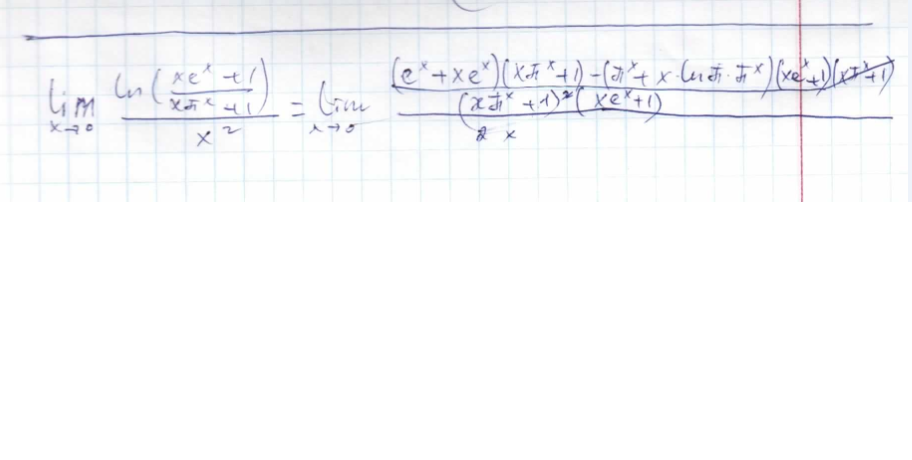 lim x→0 ln((xe^x + 1)/(xπ^x + 1)) / x^2 = lim x→0 ((e^x + xe^x)(xπ^x + 1) - (π^x + x · ln π · π^x)(xe^x + 1)(xπ^x + 1)) / ((xπ^x + 1)^2 (xe^x + 1)) / 2x